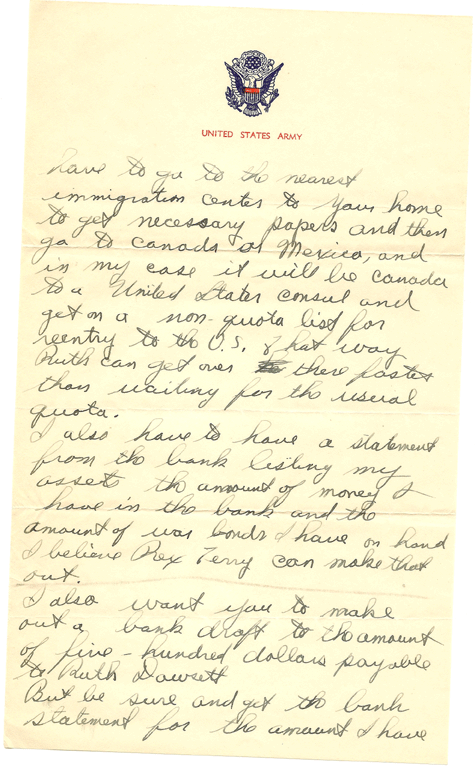 UNITED STATES ARMY
have to go to the nearest
immigration center to your home
to get necessary papers and then
go to Canada or Mexico, and
in my case it will be Canada
to a United States consul and
get on a non-quota list for
reentry to the U.S. that way
Ruth can get over there faster
than waiting for the usual
quota.
I also have to have a statement
from the bank listing my
assets the amount of money I
have in the bank and the
amount of war bonds I have on hand
I believe Rex Terry can make that
out.
I also want you to make
out a bank draft to the amount
of five-hundred dollars payable
to Ruth Dowsett
But be sure and get the bank
statement for the amount I have